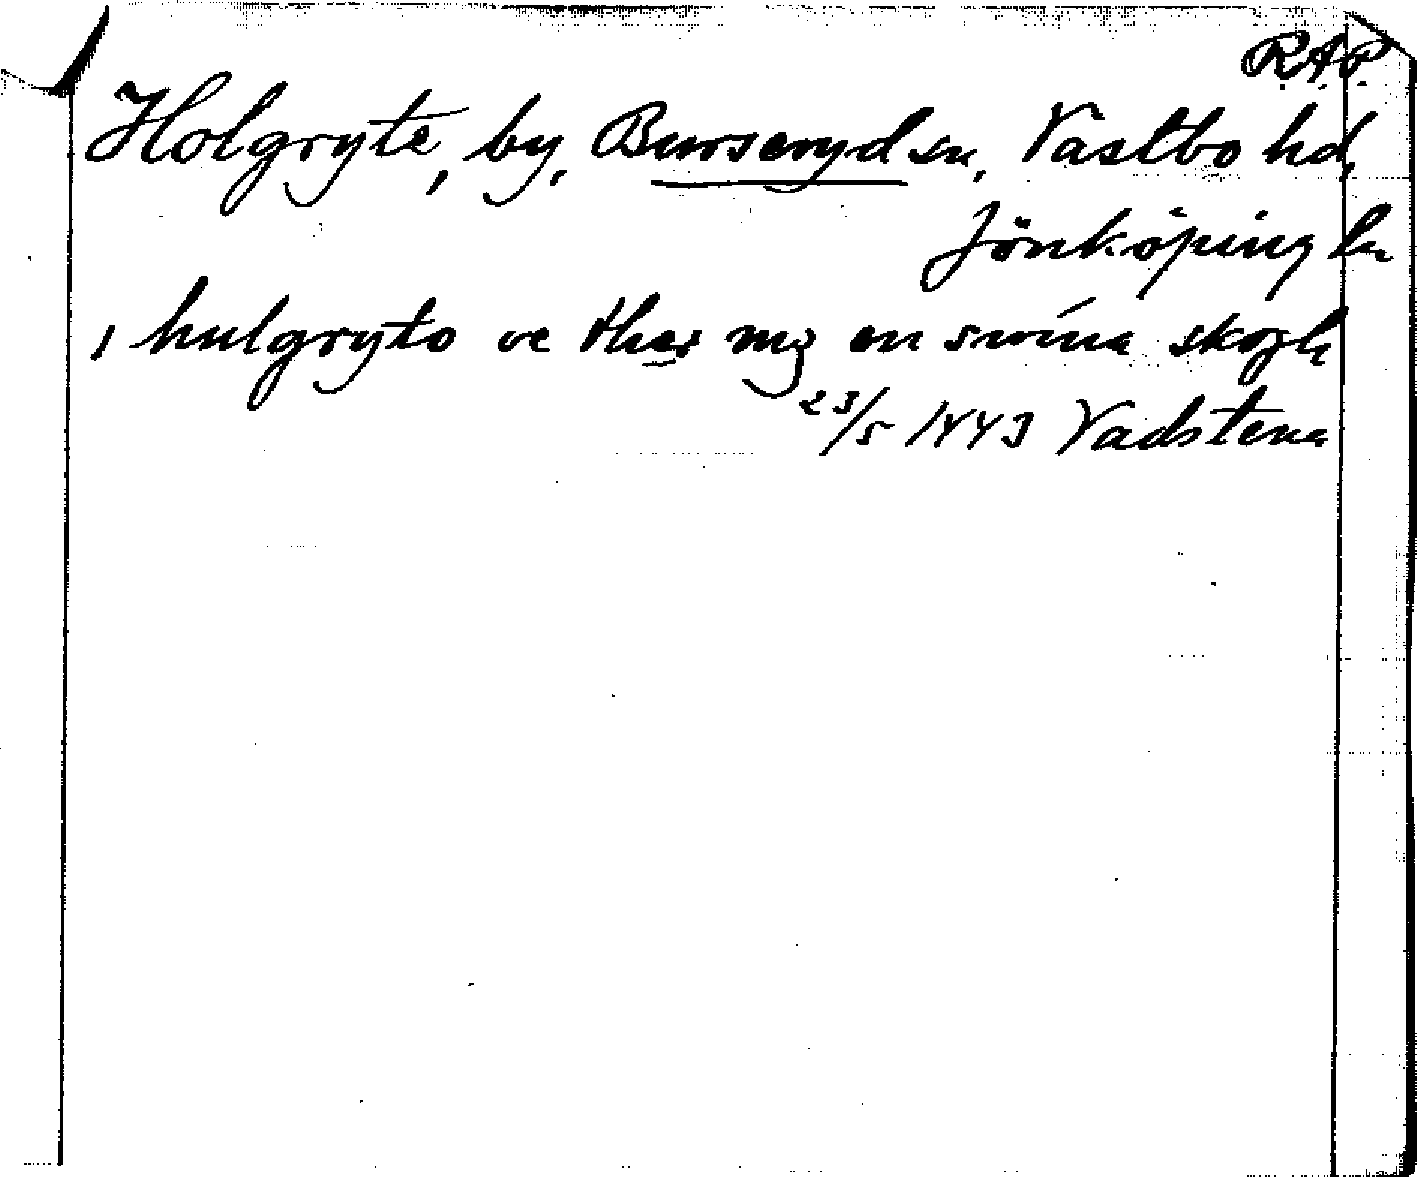 R.A.P.
Holgryte, by, Burseryd sn, Västbo hd,
Jönköping ln
i hulgryto oc ther mz en swina skogh
23/5 1443 Vadstena